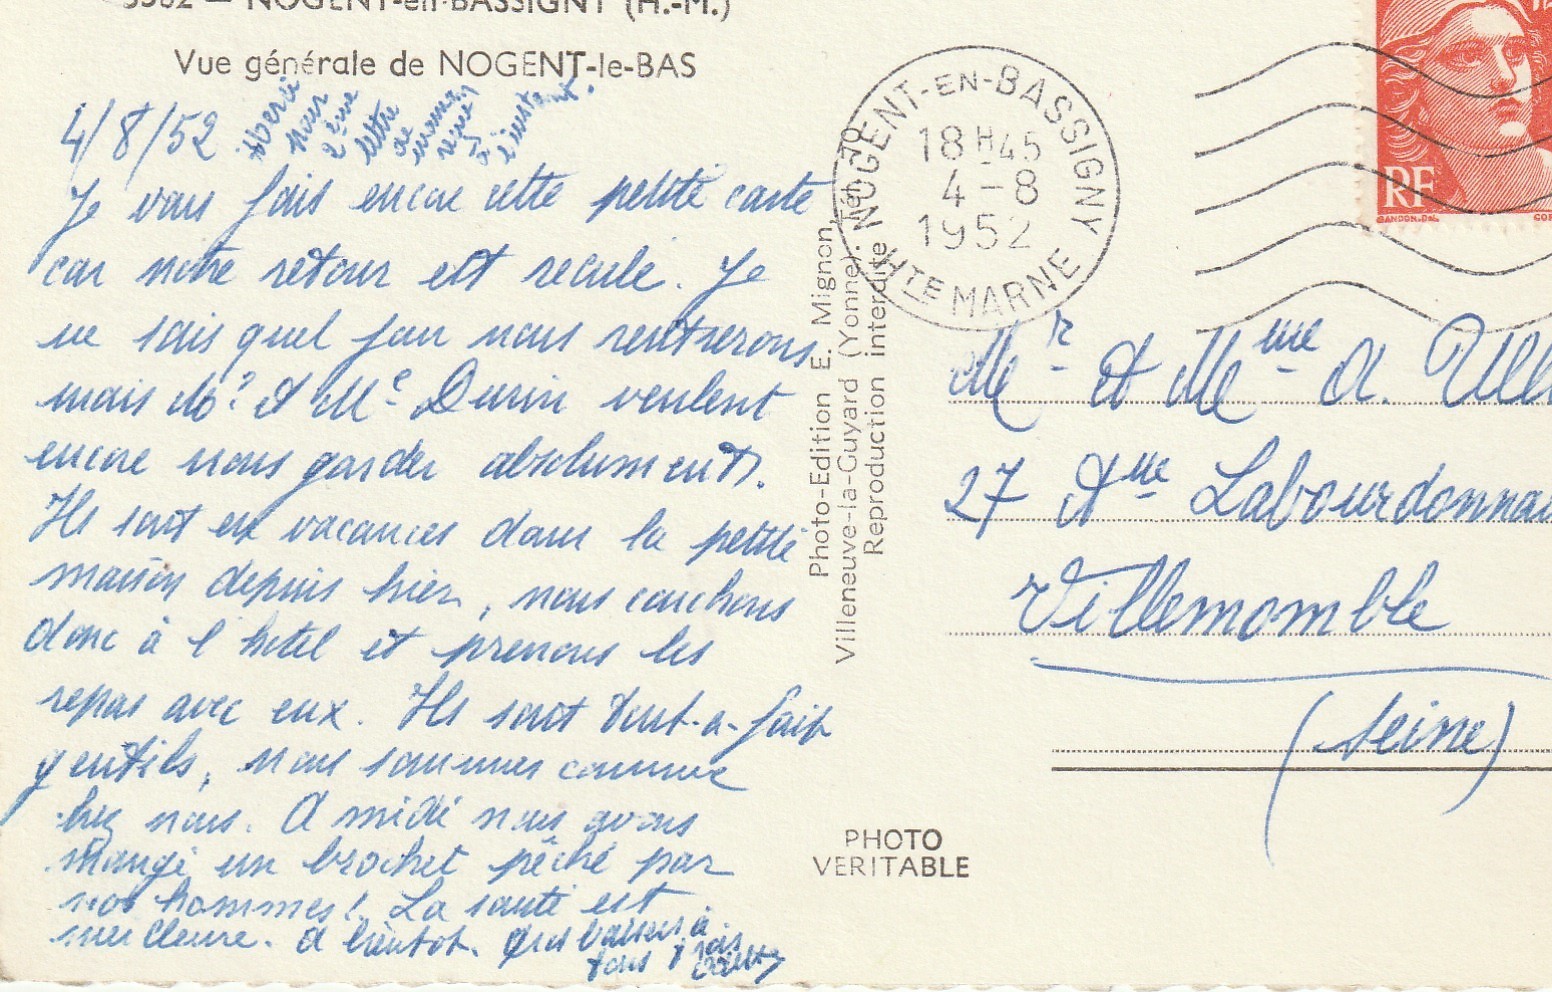 5582 — NOGENT-en-BASSIGNY (H.-M.)
Vue générale de NOGENT-le-BAS
4/8/52
Merci
pour
2ème
lettre
de
maman
reçue
à
l'instant.
Je vous fais encore cette petite carte
car notre retour est reculé. Je
ne sais quel jour nous rentrerons
mais Mr et Me Durin veulent
encore nous garder absolument.
Ils sont en vacances dans la petite
maison depuis hier, nous couchons
donc à l'hotel et prenons les
repas avec eux. Ils sont tout-a-fait
gentils, nous sommes comme
chez nous. A midi nous avons
mangé un brochet pêché par
nos hommes! La santé est
meilleure. A bientot. Gros baisers à
tous
Photo-Edition E. Mignon,
Villeneuve-la-Guyard (Yonne). Tél. 70
Reproduction interdite
NOGENT-EN-BASSIGNY
18H45
4-8
1952
HTE MARNE
RF
GANDON-Del.
Mr et Mme A.
27 Aue Labourdonnai
Villemomble
(Seine)
PHOTO
VERITABLE